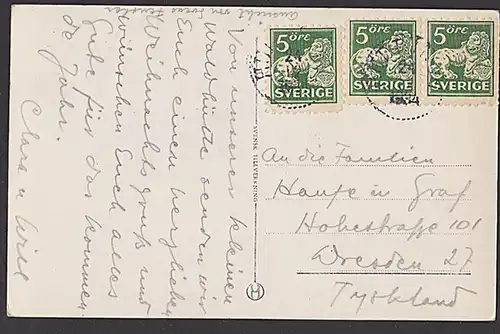 Aussicht von Eurem Fenster
Von unserer kleinen
Waldhütte senden wir
Euch einen herzlichen
Weihnachtsgruß und
wünschen Euch alles
Gute für das kommen-
de Jahr.
Clara u
5 ÖRE
SVERIGE
5 ÖRE
SVERIGE
5 ÖRE
SVERIGE
SVENSK TILLVERKNING
An die Familien
Haufe u Graf
Hohestraße 101
Dresden 27
Tyskland